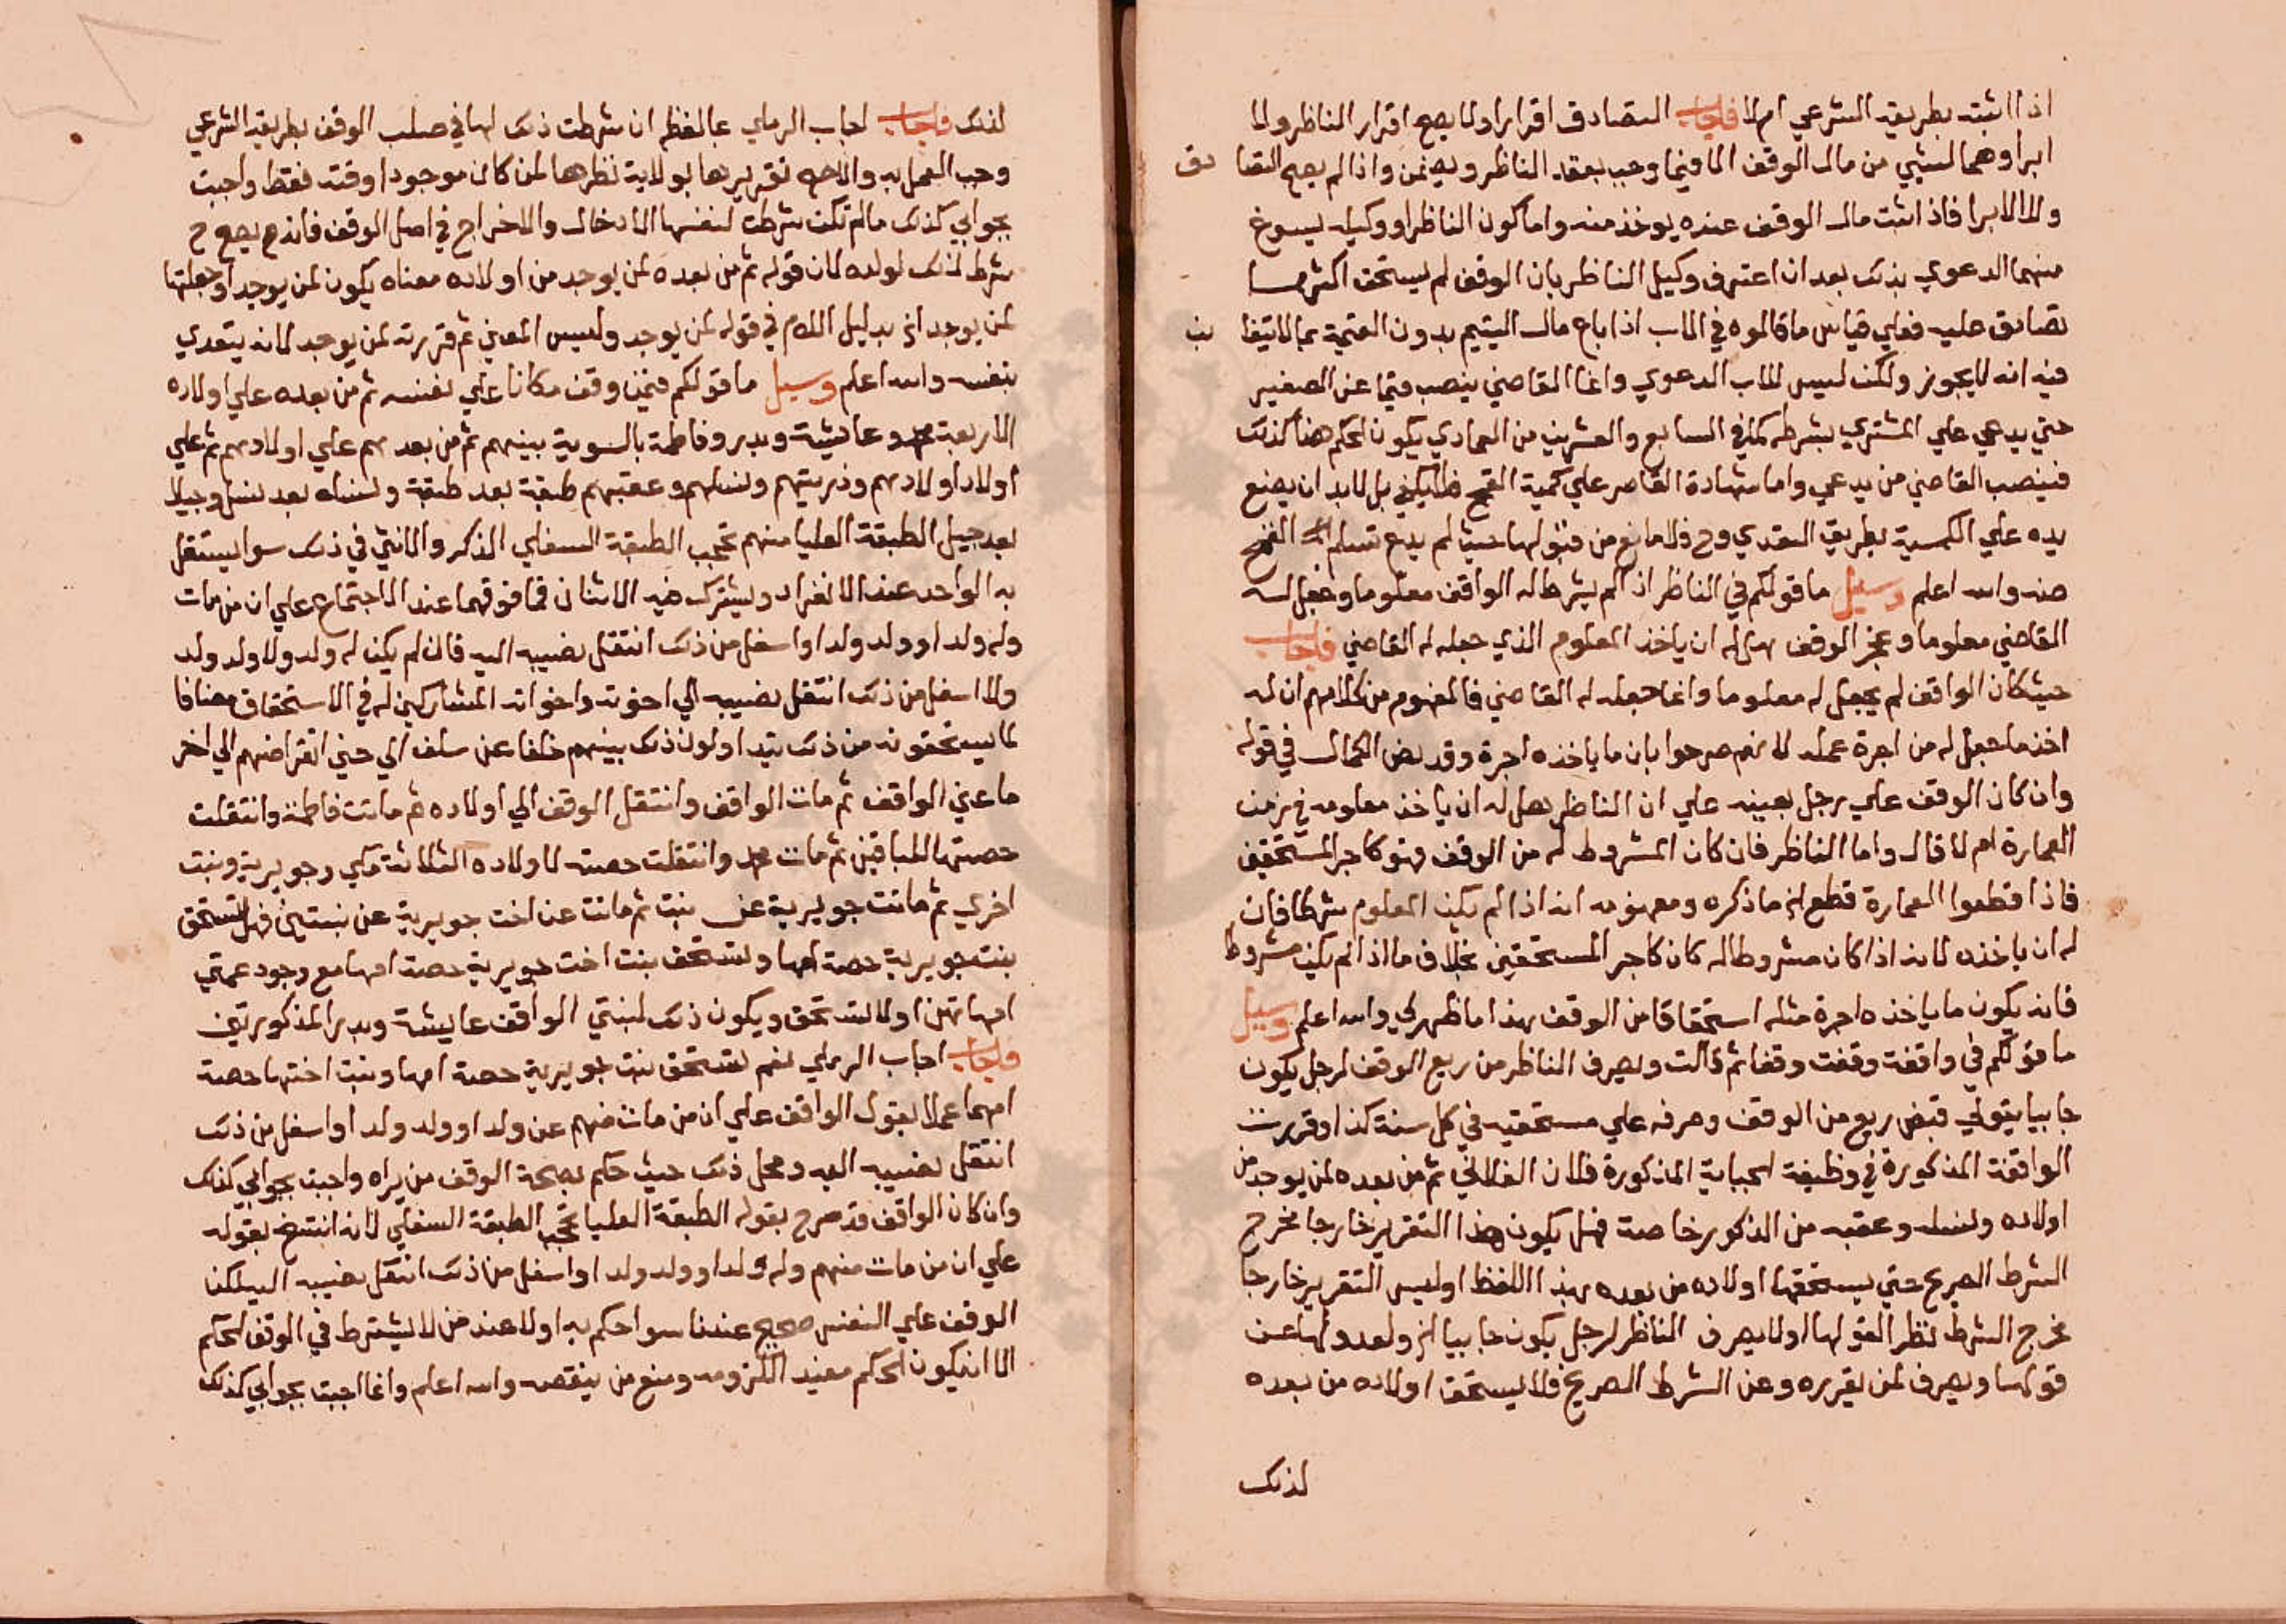 اذا اثبته بطريقه الشرعي ام لا فاجاب التصادق اقرار اولا يصح اقرار الناظر ولا
ابراوهما لشيي من مال الوقف الا فيما وجب بعقد الناظر ويضمن واذا لم يصح التصا دق
والا لابرا فاذا اثبت مال الوقف عنده يوخذ منه واما كون الناظر او وكيله يسوغ
منهما الدعوي بذلك بعد ان اعترف وكيل الناظر بان الوقف لم يستحق اكثر مما
تصادق عليه فعلي قياس ما قالوه في الاب اذا باع مال اليتيم بدون القيمة بما لا يتغا بن
فيه انه لا يجوز ولكن ليس للاب الدعوي وانما القاضي ينصب قيما عن الصغير
حتي يدعي علي المشتري بشرطه كما في السابع والعشرين من العمادي يكون الحكم هنا كذلك
فينصب القاضي من يدعي واما شهادة القاصر علي كمية القمح فلا يكفي بل لا بد ان يضع
يده علي الكمية بطريق التعدي وح فلا مانع من قبولها حيث لم يدع تسلم القمح
منه والله اعلم وسيل ما قولكم في الناظر اذا لم يشرط له الواقف معلوما وجعل له
القاضي معلوما وعجز الوقف هل له ان ياخذ المعلوم الذي جعله له القاضي فاجاب
حيث كان الواقف لم يجعل له معلوما وانما جعله له القاضي فالمفهوم من كلامهم ان له
اخذ ما جعل له من اجرة عمله لانهم صرحوا بان ما ياخذه اجرة وقد نص الكمال في قوله
وان كان الوقف علي رجل بعينه علي ان الناظر هل له ان ياخذ معلومه في زمن
العمارة ام لا قال واما الناظر فان كان المشروط له من الوقف فهو كاحد المستحقين
فاذا قطعوا للعمارة قطع الخ ما ذكره ومفهومه انه اذا لم يكن المعلوم شرطا فان
له ان ياخذه لانه اذا كان مشروطا له كان كاحد المستحقين بخلاف ما اذا لم يكن مشروطا
فانه يكون ما ياخذه اجرة مثله استحقاقا من الوقف هذا ما ظهر لي والله اعلم وسيل
ما قولكم في واقفة وقفت وقفا ثم قالت ويصرف الناظر من ريع الوقف لرجل يكون
جابيا يتولي قبض ريع من الوقف وصرفه علي مستحقيه في كل سنة كذا وقررت
الواقفة المذكورة في وظيفة الجباية المذكورة فلان الفلاني ثم من بعده لمن يوجد من
اولاده ونسله وعقبه من الذكور خاصة فهل يكون هذا التقرير خارجا مخرج
الشرط الصريح حتي يستحقها اولاده من بعده بهذا اللفظ او ليس التقرير خارجا
مخرج الشرط نظرا لقولها اولا يصرف الناظر لرجل يكون جابيا الخ ولعدولها عن
قولها ويصرف لمن تقرره وعن الشرط الصريح فلا يستحق اولاده من بعده
لذلك
لذلك فاجاب اجاب الرملي بما لفظه ان شرطت ذلك لها في صلب الوقف بطريقه الشرعي
وجب العمل به والاصح تقريرها بولاية نظرها لمن كان موجودا وقته فقط واجبت
بجوابي كذلك ما لم تكن شرطت لنفسها الادخال والاخراج في اصل الوقف فانه يصح ح
شرط لذلك لولده لان قوله ثم من بعده لمن يوجد من اولاده معناه يكون لمن يوجد او جعلتها
لمن يوجد الخ بدليل اللام في قوله لمن يوجد وليس المعني ثم قررته لمن يوجد لانه يتعدي
بنفسه والله اعلم وسيل ما قولكم فيمن وقف مكانا علي نفسه ثم من بعده علي اولاده
الاربعة محمد وعايشة وبدر وفاطمة بالسوية بينهم ثم من بعد هم علي اولادهم ثم علي
اولاد اولادهم وذريتهم ونسلهم وعقبهم طبقة بعد طبقة ونسلا بعد نسل وجيلا
بعد جيل الطبقة العليا منهم تحجب الطبقة السفلي الذكر والانثي في ذلك سوا يستقل
به الواحد عند الانفراد ويشترك فيه الاثنان فما فوقهما عند الاجتماع علي ان من مات
وله ولد او ولد ولد او اسفل من ذلك انتقل نصيبه اليه فان لم يكن له ولد ولا ولد ولد
ولا اسفل من ذلك انتقل نصيبه الي اخوته واخواته المشاركين له في الاستحقاق مضافا
لما يستحقونه من ذلك يتداولون ذلك بينهم خلفا عن سلف الي حين انقراضهم الي اخر
ما عني الواقف ثم مات الواقف وانتقل الوقف الي اولاده ثم ماتت فاطمة وانتقلت
حصتها للباقين ثم مات محمد وانتقلت حصته لاولاده الثلاثة مكي وجويرية وبنت
اخري ثم ماتت جويرية عن بنت ثم ماتت عن اخت جويرية عن بنتين فهل تستحق
بنت جويرية حصة امها وتستحق بنت اخت جويرية حصة امها مع وجود عمتي
امهاتهن اولا تستحق ويكون ذلك لبنتي الواقف عايشة وبدر المذكورتين
فاجاب اجاب الرملي نعم تستحق بنت جويرية حصة امها وبنت اختها حصة
امهما عملا بقول الواقف علي ان من مات منهم عن ولد او ولد ولد او اسفل من ذلك
انتقل نصيبه اليه ومحل ذلك حيث حكم بصحة الوقف من يراه واجبت بجوابي كذلك
وان كان الواقف قد صرح بقوله الطبقة العليا تحجب الطبقة السفلي لانه انتسخ بقوله
علي ان من مات منهم وله ولد او ولد ولد او اسفل من ذلك انتقل نصيبه اليه لكن
الوقف علي النفس صحيح عندنا سوا حكم به اولا عند من لا يشترط في الوقف الحكم
الا ان يكون الحكم مفيد اللزومه ومنع من ينقصه والله اعلم وانما اجبت بجوابي كذلك